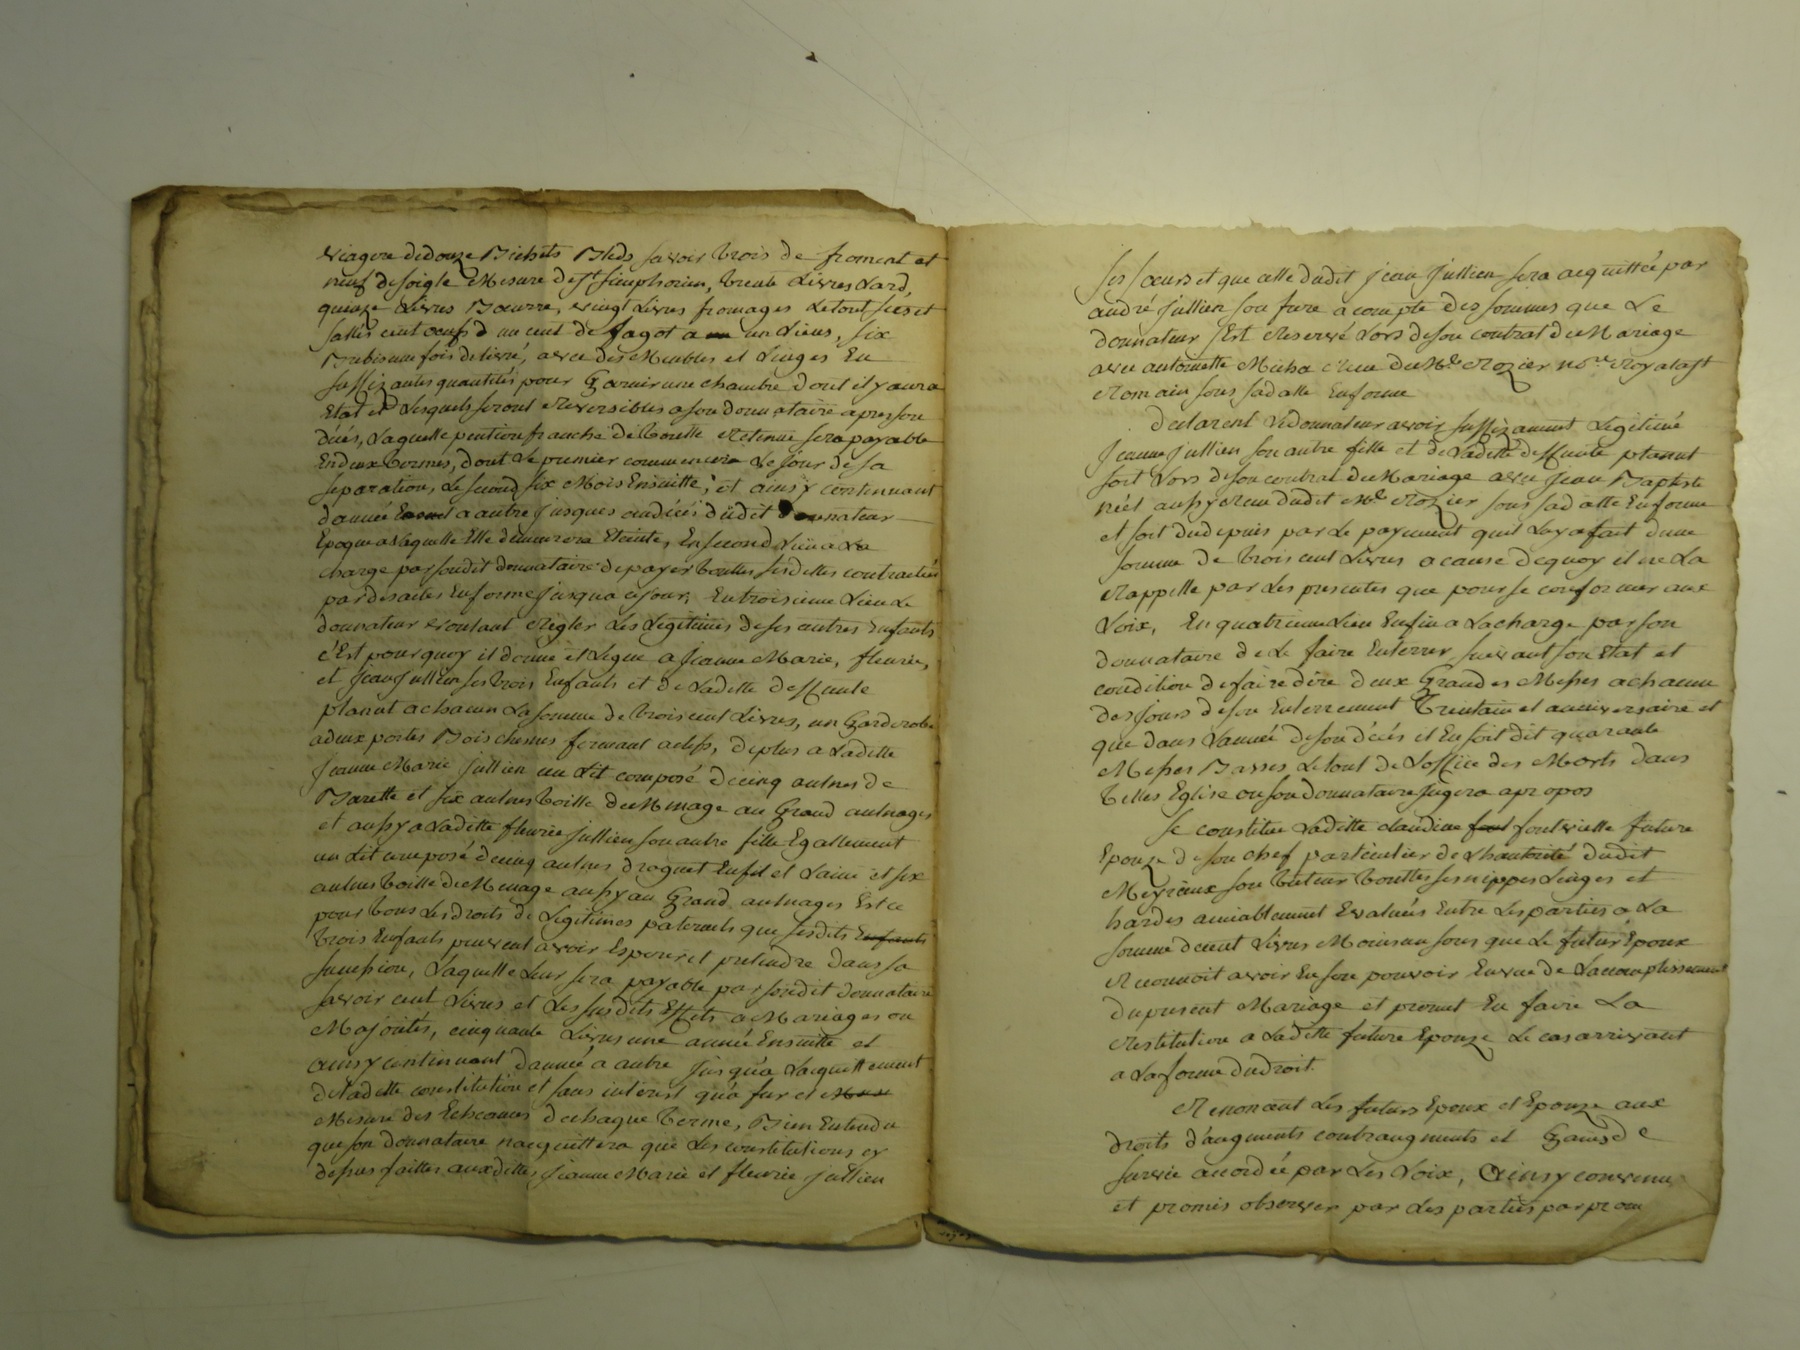 viagere de douze Bichets Bleds savoir trois de froment et
neuf de soigle Mesure de St simphorien, trente Livres Lard,
quinze Livres Bœurre, vingt Livres fromages Letout secs et
sallés cent œufs d un cent de fagot a un Liens, six
Brebis une fois delivré, avec des Meubles et Linges En
suffizantes quantités pour Garnir une chambre dont il y aura
Etat et Lesquels seront Reversibles a son donnataire apres son
décés, Laquelle pention franche de toutte Retenüe sera payable
En deux termes, dont Le premier commencera Le Jour de sa
separation, Le second six Mois Ensuitte, et ainsÿ continuant
dannée a autre jusques audécés düdit donnateur
Epoque a Laquelle Elle demeurera Eteinte, En second Lieu a La
charge par sondit donnataire de payer touttes sesdettes contractées
par des actes En forme jusqua ce jour; En troisieme Lieu Le
donnateur voulant Régler Les Legitimes de ses autres Enfants
c'Est pourquoy il donne et Legue a Jeanne Marie, fleurie,
et Jean Jullien ses trois Enfants et de Laditte deffunte
planut a chacun La somme de trois cent Livres, un Garderobe
a deux portes Bois chesnes fermant a clefs, de plus a Laditte
Jeanne Marie Jullien un Lit composé de cinq autnes de
Barette et six autnes toille de Menage au Grand autnages
et aussy a Laditte fleurie jullien son autre fille Egallement
un Lit composé de cinq autnes droguet En fil et Laine et six
autnes toille de Menage aussy au Grand autnages Est ce
pour tous Les droits de Legitimes paternels que sesdits Enfants
trois Enfants peuvent avoir Esperer et pretendre dans sa
succession, Laquelle Leur sera payable par sondit donnataire
savoir cent Livres et Les susdits Effets a Mariages ou
Majorités, cinquante Livres une année Ensuitte et
ainsy continuant dannée a autre jusqu'a Lacquittement
de Laditte constitution et sans interest qu'a fur et
Mesure des Echeances de chaque terme, Bien Entendu
que son donnataire nacquittera que Les constitutions cy
dessus faittes auxdittes Jeanne Marie et fleurie jullien
ses sœurs et que celle dudit Jean Jullien sera acquittée par
andré jullien son frere a compte des sommes que Le
donnateur sEst Reservé Lors de son contrat de Mariage
avec antoinette Micha Reçu du Me Rozier nore Royal a st
Romain sous sa datte En forme
declarent Le donnateur avoir suffizament Legitimé
Jeanne jullien son autre fille et de Laditte deffunte planut
soit Lors de son contrat de Mariage avec Jean Baptiste
néel aussy Reçu dudit Me Rozier sous sa datte En forme
et soit dudepuis par Le payement quil Luy a fait d'une
somme de trois cent Livres a cause dequoy il ne La
Rappelle par Les presentes que pour se conformer aux
Loix, En quatrieme Lieu Enfin a La charge par son
donnataire de Le faire Enterrer suivant son Etat et
condition de faire dire deux Grandes Messes a chacun
des jours de son Enterrement trentain et anniversaire et
que dans Lannée de son décés il En soit dit quarante
Messes Basses Letout de Loffice des Morts dans
telles Eglise ou son donnataire jugera apropos
Se constitue Laditte claudine fontvielle future
Epouze de son chef particulier de Lhautorité dudit
Meyrieux son tuteur touttes ses nippes Linges et
hardes amiablement Evalués Entre Les parties a La
somme de cent Livres Moins un sous que Le futur Epoux
Reconnoit avoir En son pouvoir En vue de Laccomplissement
du present Mariage et promet En faire La
Restitution a Laditte future Epouze Le cas arrivant
a La forme du droit.
Renonçent Les futurs Epoux et Epouze aux
droits d'augments contraugments et Gains de
survie accordée par Les Loix, Ainsy convenu
et promis observer par Les parties par prom